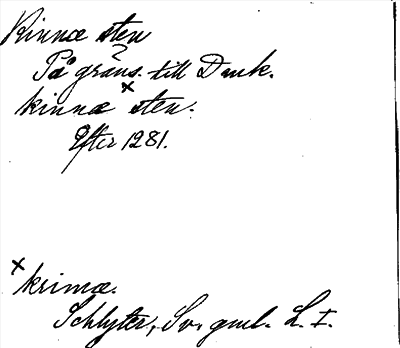 Kinnæ sten
På gräns. till Dank.
kinnæ × sten.
Efter 1281.
× krimæ.
Schlyter, Sv. gml. L. I.